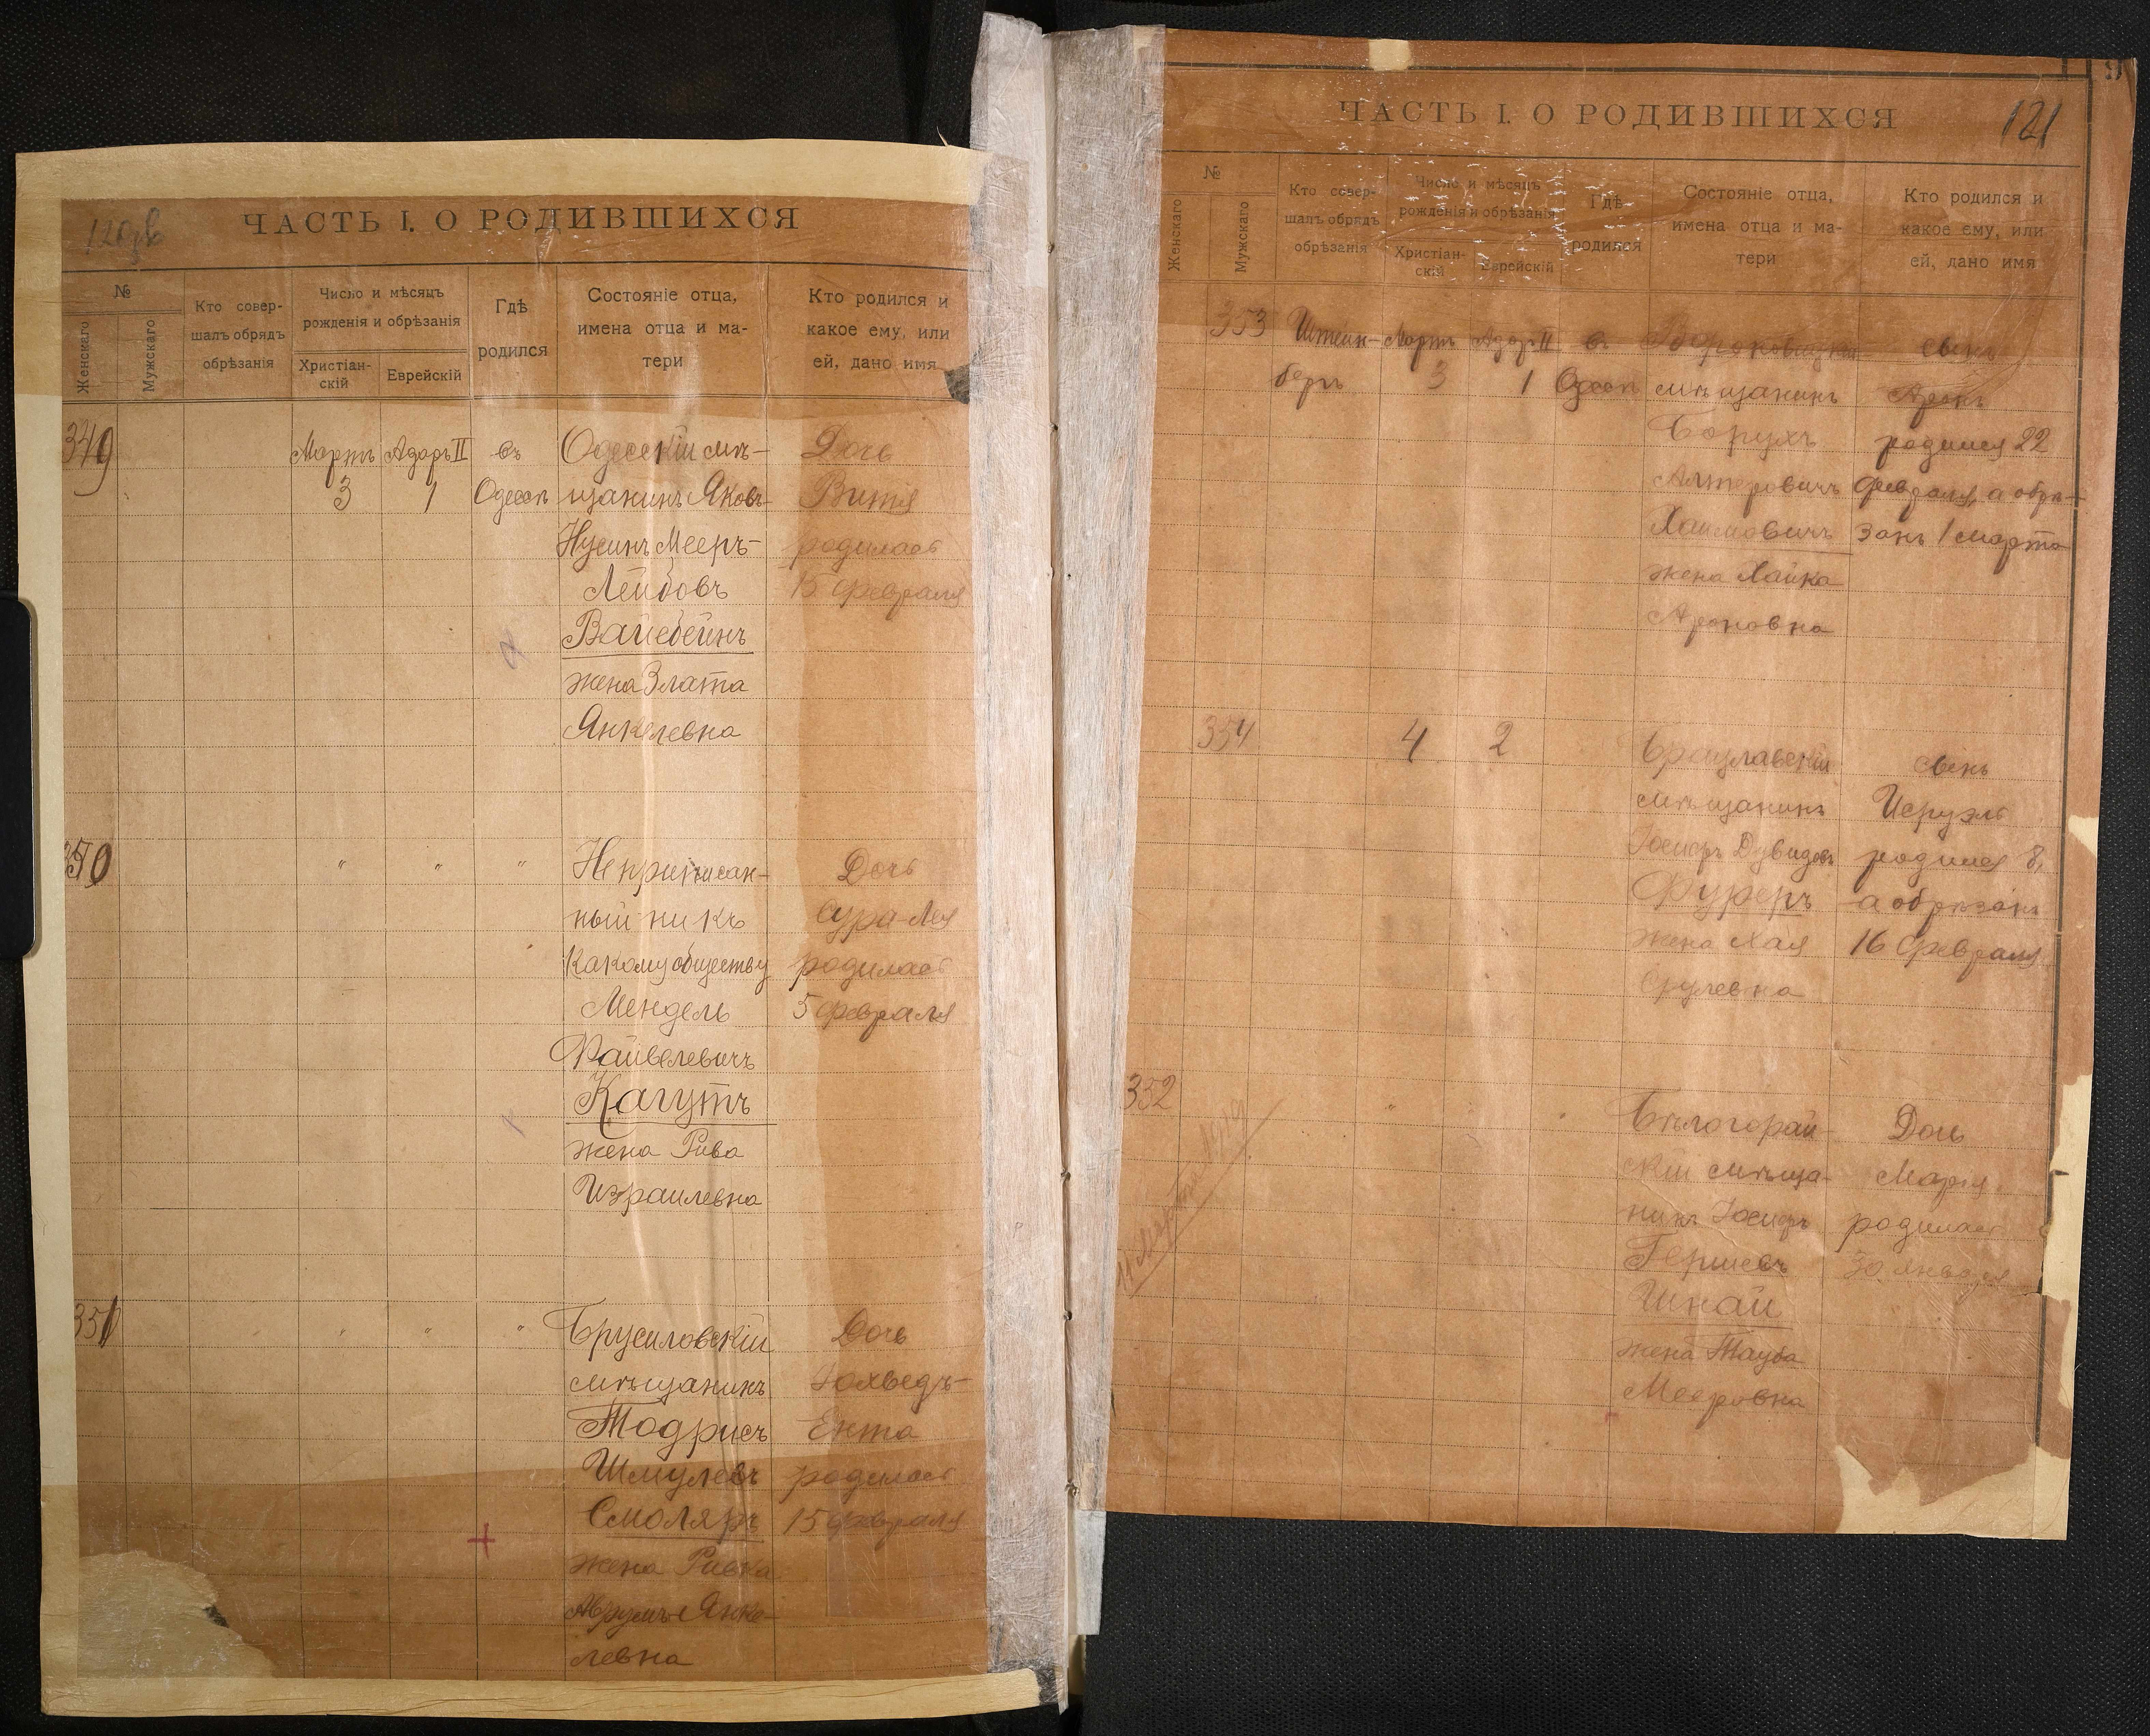 ЧАСТЬ I. О РОДИВШИХСЯ
№
Женскаго
Мужскаго
Кто совер-
шалъ обрядъ
обрѣзанія
Число и мѣсяцъ
рожденія и обрѣзанія
Христіан-
скій
Еврейскій
Гдѣ
родился
Состояніе отца,
имена отца и ма-
тери
Кто родился и
какое ему, или
ей, дано имя
349
Мартъ
3
Адаръ II
1
въ
Одессѣ
Одесскій мѣ-
щанинъ Яковъ-
Нусинъ Мееръ-
Лейбовъ
Вайсбейнъ
жена Злата
Янкелевна
Дочь
Витя
родилась
15 февраля
350
"
"
"
Неприписан-
ный ни къ
какому обществу
Мендель
Файвелевичъ
Кагутъ
жена Рива
Израилевна
Дочь
Сура-Лея
родилась
5 февраля
351
"
"
"
Брусиловскій
мѣщанинъ
Тодрисъ
Шмулевъ
Смоляръ
жена Ривка
Аврумъ-Янке-
левна
Дочь
Іохведъ-
Ента
родилась
15 февраля
ЧАСТЬ I. О РОДИВШИХСЯ
121
№
Женскаго
Мужскаго
Кто совер-
шалъ обрядъ
обрѣзанія
Число и мѣсяцъ
рожденія и обрѣзанія
Христіан-
скій
Еврейскій
Гдѣ
родился
Состояніе отца,
имена отца и ма-
тери
Кто родился и
какое ему, или
ей, дано имя
353
Штейн-
берг
Мартъ
3
Адаръ II
1
въ
Одессѣ
мѣщанинъ
Борухъ
Алтеровичъ
Хаимовичъ
жена Хайка
Ароновна
сынъ
Аронъ
родился 22
февраля, а обрѣ-
занъ 1 марта
354
4
2
Брацлавскій
мѣщанинъ
Іосифъ Дувидовъ
Фуреръ
жена Хая
Срулевна
сынъ
Исруэль
родился 8,
а обрѣзанъ
16 февраля
352
"
"
Бѣлогорай-
скій мѣща-
нинъ Іосифъ
Гершевъ
Шнай
жена Тауба
Мееровна
Дочь
Марія
родилась
30 января